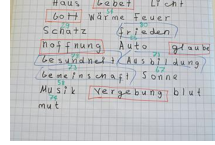 Haus Gebet Licht
Gott Wärme Feuer
Schatz Frieden
Hoffnung Auto Glaube
Gesundheit Ausbildung
Gemeinschaft Sonne
Musik Vergebung blut
mut